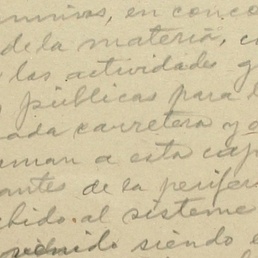 en conco
de la materia, c
las actividades g
públicas para l
ada carretera y
man a esta cap
antes de la perifer
bido al sisteme
venido siendo e